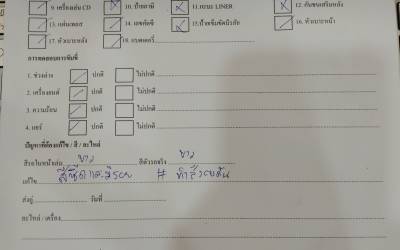 9. เครื่องเล่น CD 10. ป้ายภาษี 11. แบบ LINER 12. กันชนเสริมหลัง
13. แผ่นเพลท 14. เลขตัวถัง 15. ป้ายเข็มขัดนิรภัย 16. หัวเบาะหน้า
17. หัวเบาะหลัง 18. แบตเตอรี่
การทดสอบการขับขี่
1. ช่วงล่าง ปกติ ไม่ปกติ
2. เครื่องยนต์ ปกติ ไม่ปกติ
3. ความร้อน ปกติ ไม่ปกติ
4. แอร์ ปกติ ไม่ปกติ
ปัญหาที่ต้องแก้ไข / สี / อะไหล่
สีรถในหน้าเล่ม ขาว สีตัวรถจริง ขาว
แก้ไข #
ส่งอู่ วันที่
อะไหล่ / เครื่อง